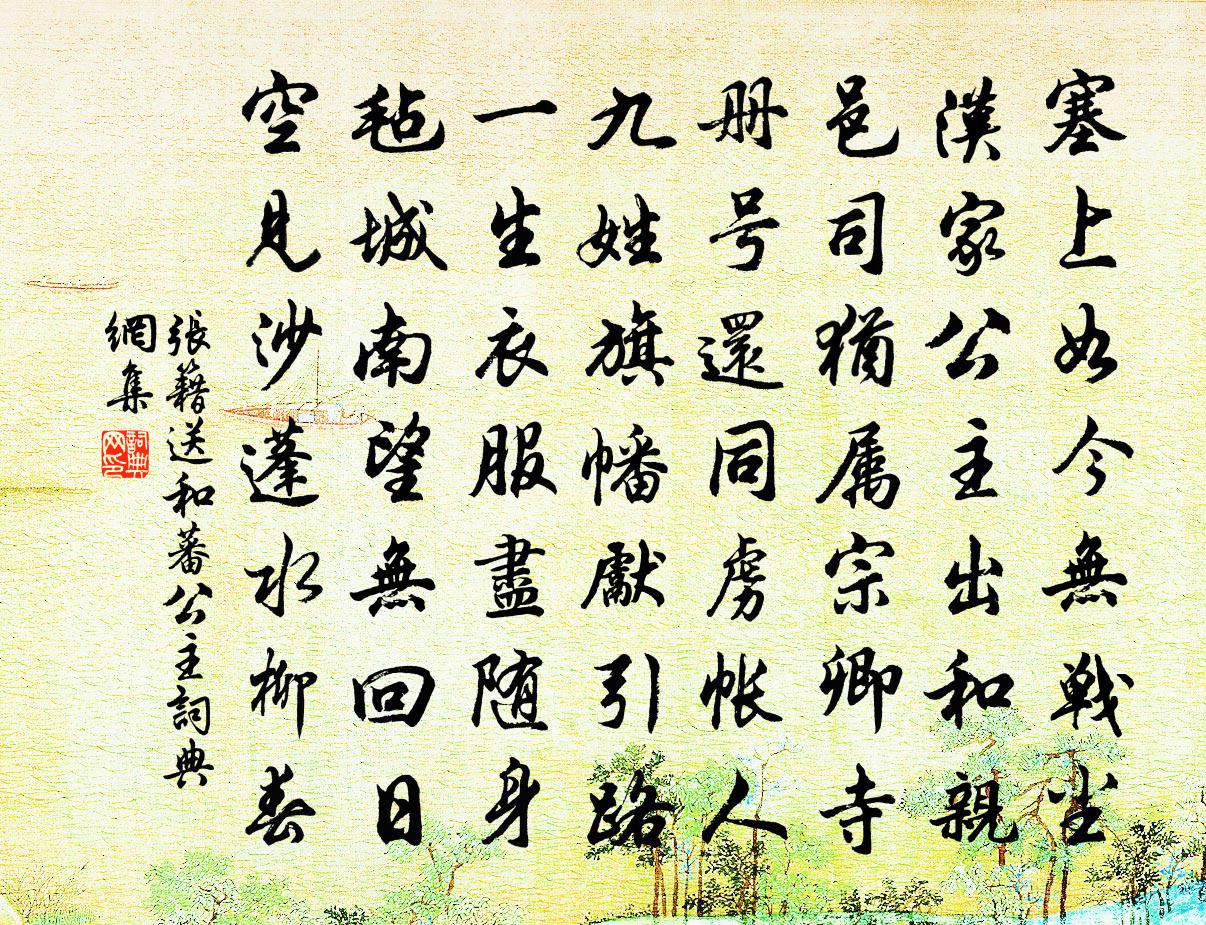 塞上如今無戦尘
漢家公主出和親
邑司猶属宗卿寺
册号還同虏帳人
九姓旗幡獻引路
一生衣服盡随身
毡城南望無回日
空見沙蓬水柳春
張籍送和蕃公主詞典
網集
詞典
网印